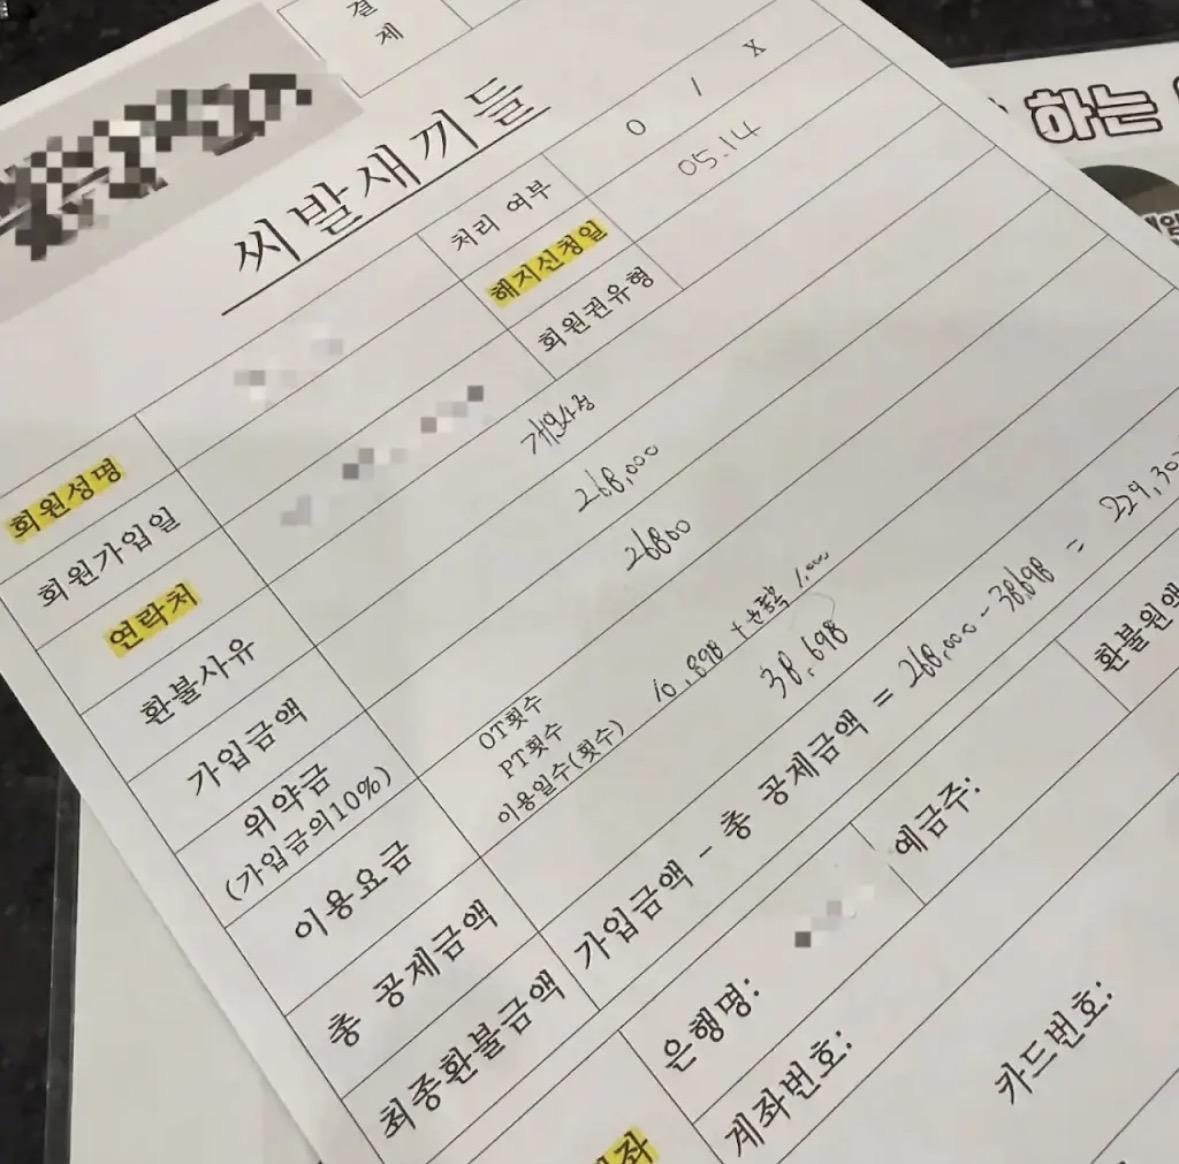 결
제
하는
씨발새끼들
처리 여부 O / X
해지신청일 05.14
회원권유형
회원성명
회원가입일
연락처
환불사유 개인사정
가입금액 268,000
위약금 26800
(가입금의10%)
이용요금
OT횟수
PT횟수
이용일수(횟수) 10,898 + 1,000
총 공제금액 38,698
최종환불금액 가입금액 - 총 공제금액 = 268,000 - 38,698 = 229,30
환불원액
은행명:
예금주:
계좌번호:
카드번호: